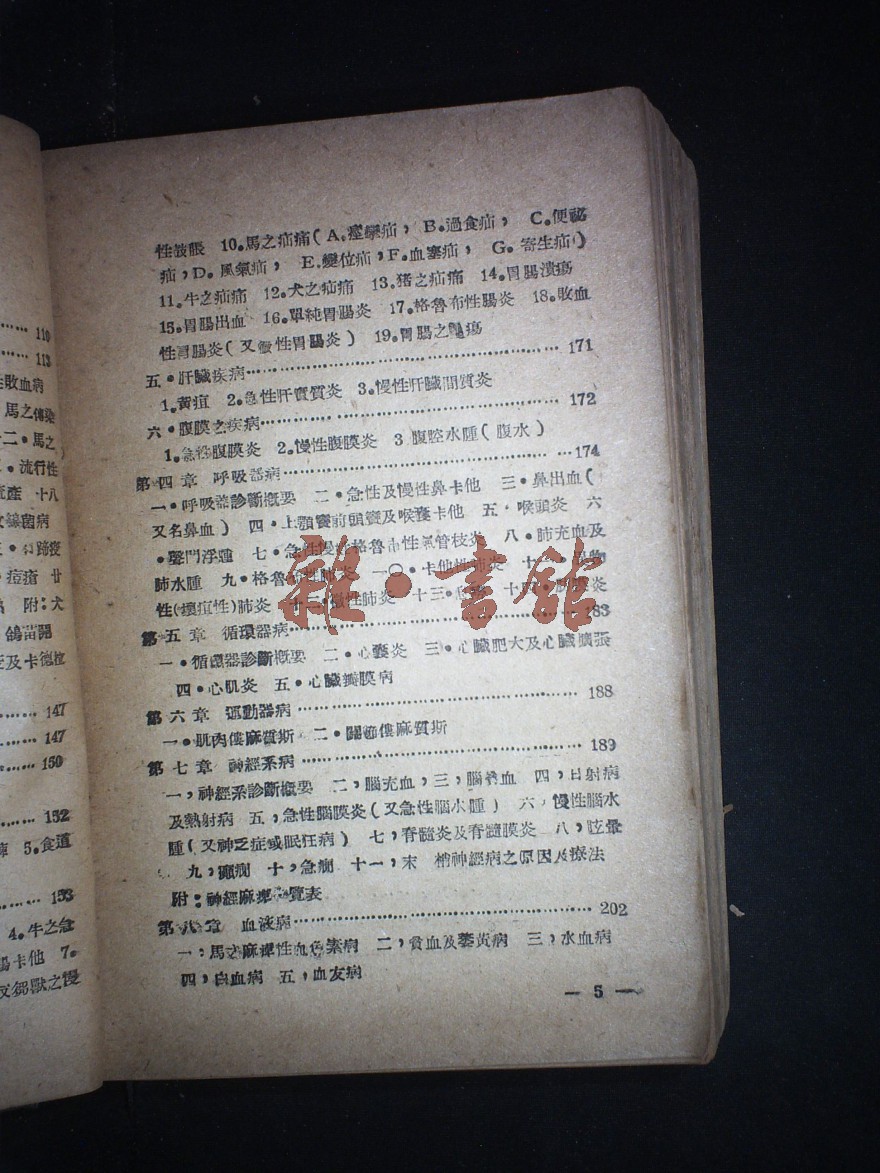 110
113
性敗血病
馬之傳染
十二•馬之
•流行性
流產 十八
線菌病
•蹄疫
•痘瘡 廿
附:犬
及卡德拉
147
147
150
152
5.食道
153
4.牛之急
腸卡他 7.
反芻獸之慢
性鼓脹 10.馬之疝痛(A.痙攣疝, B.過食疝, C.便祕
疝,D.風氣疝, E.變位疝,F.血塞疝, G.寄生疝)
11.牛之疝痛 12.犬之疝痛 13.猪之疝痛 14.胃腸潰瘍
15.胃腸出血 16.單純胃腸炎 17.格魯布性腸炎 18.敗血
性胃腸炎(又 性胃腸炎) 19.胃腸之 瘍
五•肝臟疾病……171
1.黃疸 2.急性肝實質炎 3.慢性肝臟間質炎
六•腹膜之疾病……172
1.急性腹膜炎 2.慢性腹膜炎 3 腹腔水腫(腹水)
第四章 呼吸器病……174
一•呼吸器診斷概要 二•急性及慢性鼻卡他 三•鼻出血(
又名鼻血) 四•上顎竇前頭竇及喉囊卡他 五•喉頭炎 六
•聲門浮腫 七•急性慢性格魯布性氣管枝炎 八•肺充血及
肺水腫 九•格魯布性肺炎 一〇•卡他性肺炎 十一• 物
性(壞疽性)肺炎 十二• 性肺炎 十三• 十四•胸膜炎
雜•書館
第五章 循環器病……183
一•循環器診斷概要 二•心囊炎 三•心臟肥大及心臟擴張
四•心肌炎 五•心臟瓣膜病
第六章 運動器病……188
一•肌肉僂麻質斯 二•關節僂麻質斯
第七章 神經系病……189
一,神經系診斷概要 二,腦充血,三,腦貧血 四,日射病
及熱射病 五,急性腦膜炎(又急性腦水腫) 六,慢性腦水
腫(又神乏症或眠狂病) 七,脊髓炎及脊髓膜炎 八,眩暈
九,癲癇 十,急癇 十一,末 梢神經病之原因及療法
附:神經麻痺一覽表
第八章 血液病……202
一,馬之麻痺性血色素病 二,貧血及萎黃病 三,水血病
四,白血病 五,血友病
— 5 —